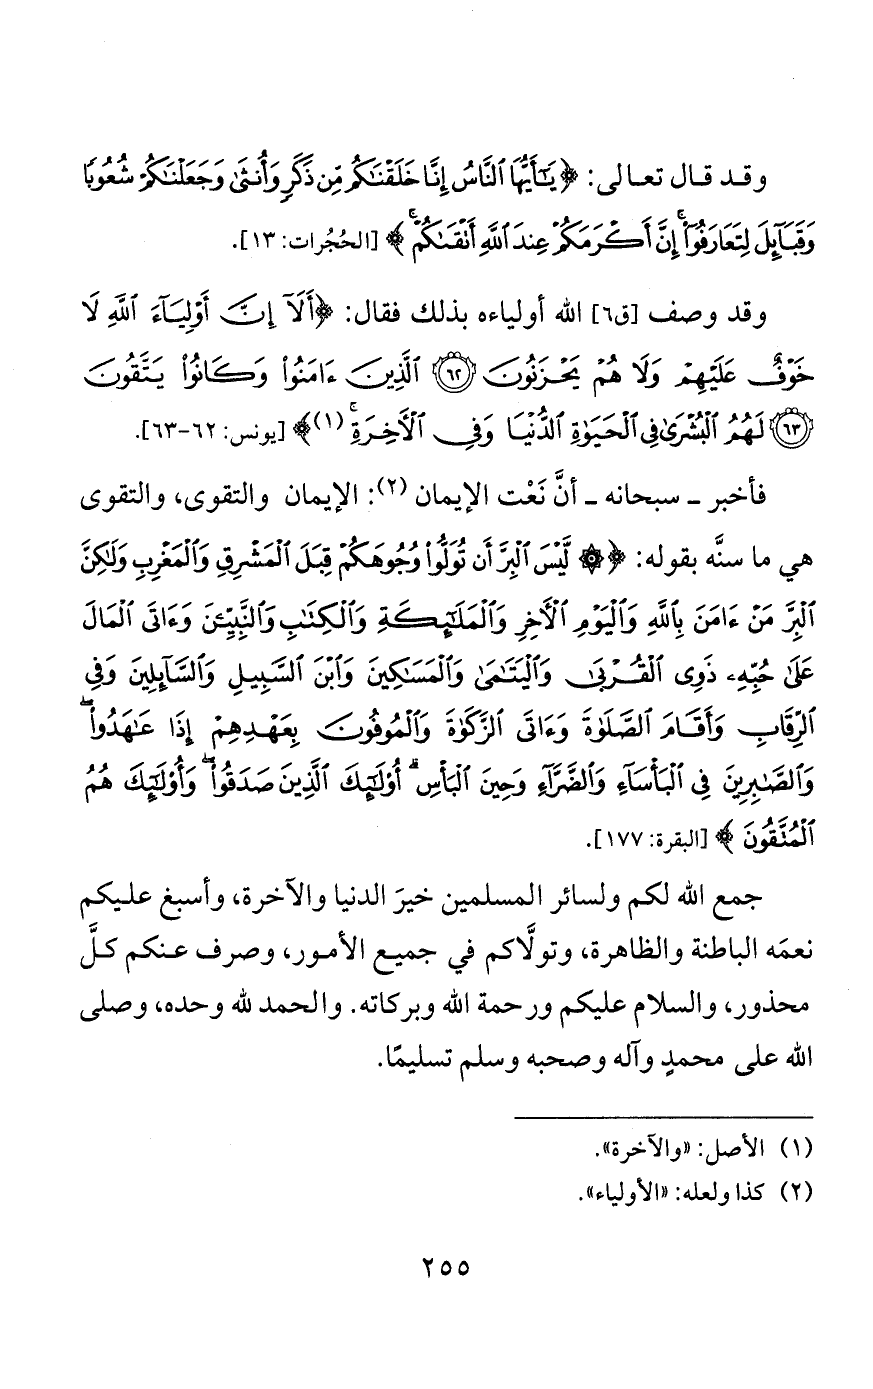 وقد قال تعالى: ﴿يَٰٓأَيُّهَا ٱلنَّاسُ إِنَّا خَلَقْنَٰكُم مِّن ذَكَرٍ وَأُنثَىٰ وَجَعَلْنَٰكُمْ شُعُوبًا
وَقَبَآئِلَ لِتَعَارَفُوٓا۟ ۚ إِنَّ أَكْرَمَكُمْ عِندَ ٱللَّهِ أَتْقَىٰكُمْ ۚ﴾ [الحُجُرات: ١٣].
وقد وصف [ق٦] الله أولياءه بذلك فقال: ﴿أَلَآ إِنَّ أَوْلِيَآءَ ٱللَّهِ لَا
خَوْفٌ عَلَيْهِمْ وَلَا هُمْ يَحْزَنُونَ ٦٢ ٱلَّذِينَ ءَامَنُوا۟ وَكَانُوا۟ يَتَّقُونَ
٦٣ لَهُمُ ٱلْبُشْرَىٰ فِى ٱلْحَيَوٰةِ ٱلدُّنْيَا وَفِى ٱلْأَخِرَةِ ۚ (١)﴾ [يونس: ٦٢-٦٣].
فأخبر ـ سبحانه ـ أنَّ نَعْت الإيمان (٢): الإيمان والتقوى، والتقوى
هي ما سنَّه بقوله: ﴿۞ لَّيْسَ ٱلْبِرَّ أَن تُوَلُّوا۟ وُجُوهَكُمْ قِبَلَ ٱلْمَشْرِقِ وَٱلْمَغْرِبِ وَلَٰكِنَّ
ٱلْبِرَّ مَنْ ءَامَنَ بِٱللَّهِ وَٱلْيَوْمِ ٱلْأَخِرِ وَٱلْمَلَٰٓئِكَةِ وَٱلْكِتَٰبِ وَٱلنَّبِيِّـۧنَ وَءَاتَى ٱلْمَالَ
عَلَىٰ حُبِّهِۦ ذَوِى ٱلْقُرْبَىٰ وَٱلْيَتَٰمَىٰ وَٱلْمَسَٰكِينَ وَٱبْنَ ٱلسَّبِيلِ وَٱلسَّآئِلِينَ وَفِى
ٱلرِّقَابِ وَأَقَامَ ٱلصَّلَوٰةَ وَءَاتَى ٱلزَّكَوٰةَ وَٱلْمُوفُونَ بِعَهْدِهِمْ إِذَا عَٰهَدُوا۟ ۖ
وَٱلصَّٰبِرِينَ فِى ٱلْبَأْسَآءِ وَٱلضَّرَّآءِ وَحِينَ ٱلْبَأْسِ ۗ أُو۟لَٰٓئِكَ ٱلَّذِينَ صَدَقُوا۟ ۖ وَأُو۟لَٰٓئِكَ هُمُ
ٱلْمُتَّقُونَ﴾ [البقرة: ١٧٧].
جمع الله لكم ولسائر المسلمين خيرَ الدنيا والآخرة، وأسبغ عليكم
نعمَه الباطنة والظاهرة، وتولَّاكم في جميع الأمور، وصرف عنكم كلَّ
محذور، والسلام عليكم ورحمة الله وبركاته. والحمد لله وحده، وصلى
الله على محمدٍ وآله وصحبه وسلم تسليمًا.
(١) الأصل: «والآخرة».
(٢) كذا ولعله: «الأولياء».
٢٥٥